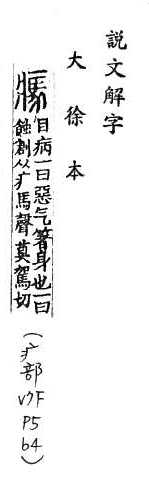 說文解字
大徐本
㾺目病一曰惡气箸身也一曰
蝕創从疒馬聲莫駕切
(疒部
V7F
P5
b4)